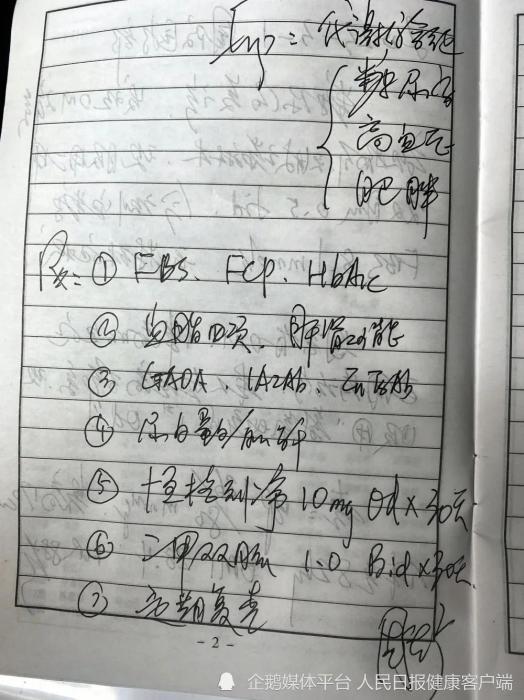 Imp: 代谢综合征
糖尿病
高血压
肥胖
Rx: ① FBS、FCP、HbA1c
② 血脂四项 肝肾功能
③ GADA、IA2Ab、ZnT8Ab
④ 尿白蛋白/肌酐
⑤ 恒格列净 10mg Qd×30天
⑥ 二甲双胍 1.0 Bid×30天
⑦ 定期复查
- 2 -
企鹅媒体平台 人民日报健康客户端